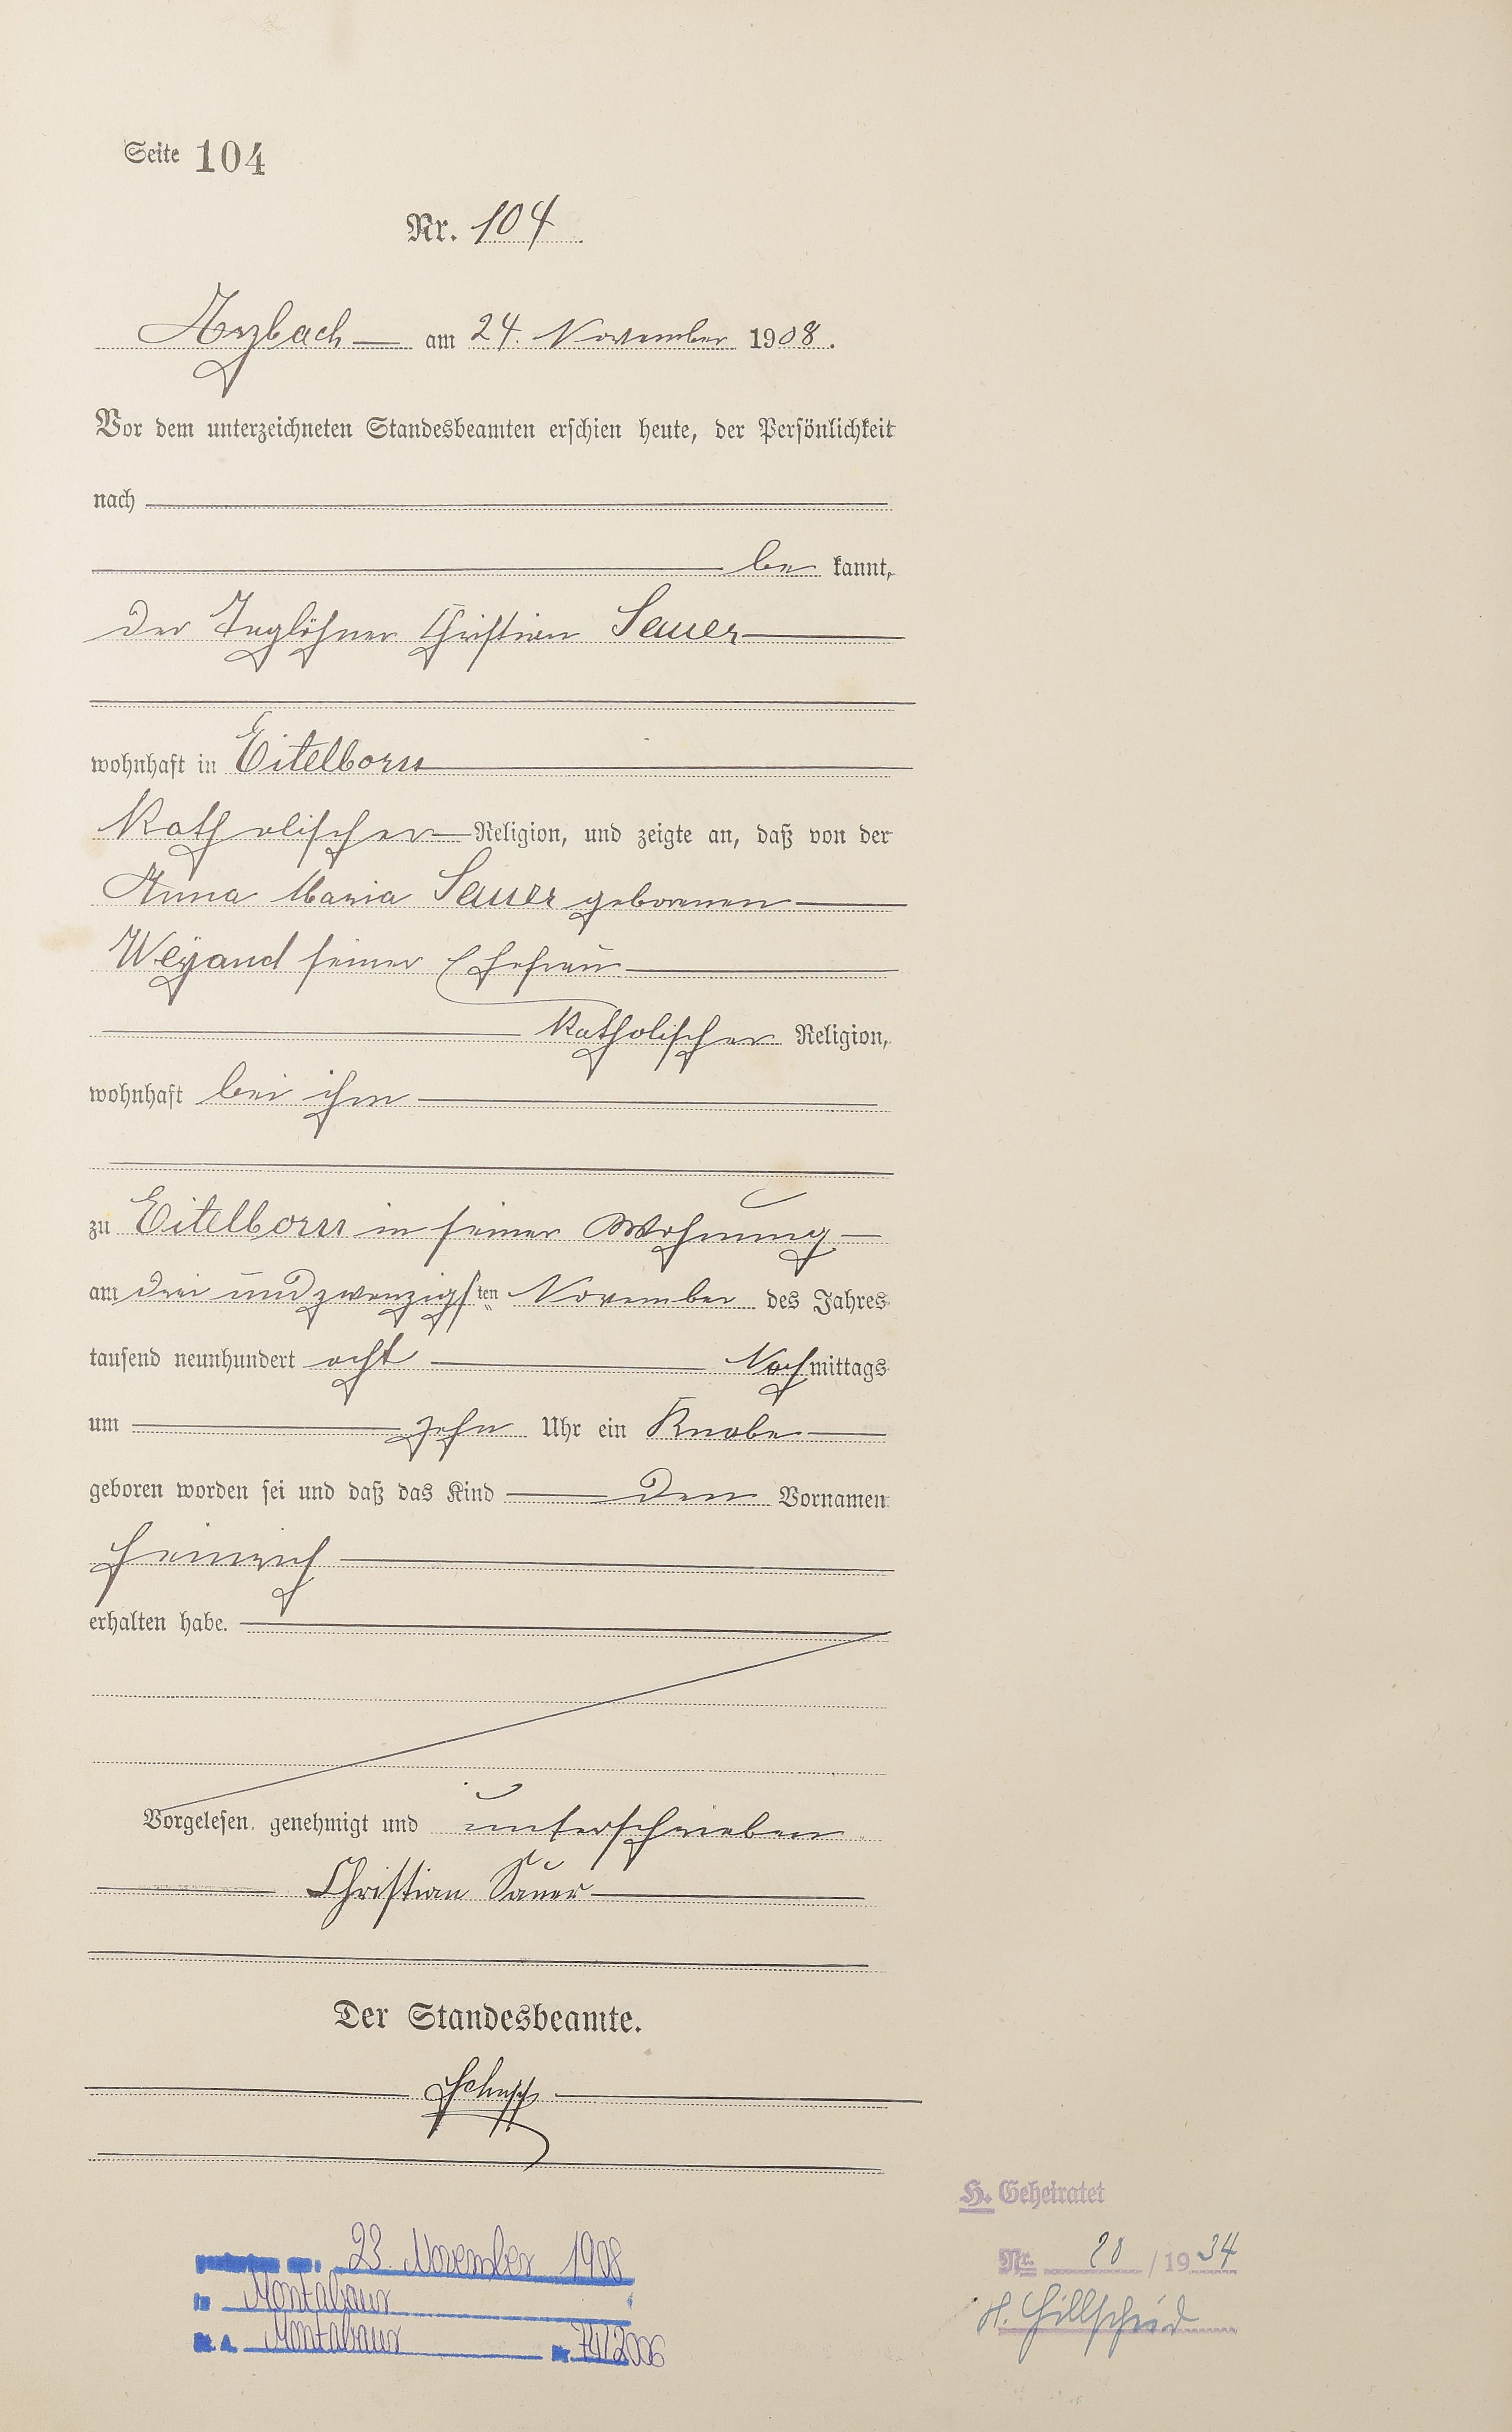 Seite 104
Nr. 104
Arzbach am 24. November 1908.
Vor dem unterzeichneten Standesbeamten erschien heute, der Persönlichkeit
nach
be kannt,
der Taglöhner Christian Sauer
wohnhaft in Eitelborn
katholischer Religion, und zeigte an, daß von der
Anna Maria Sauer geborenen
Weyand seiner Ehefrau
katholischer Religion,
wohnhaft bei ihm
zu Eitelborn in seiner Wohnung
am drei und zwanzigsten November des Jahres
tausend neunhundert acht Nachmittags
um zehn Uhr ein Knabe
geboren worden sei und daß das Kind den Vornamen
Heinrich
erhalten habe.
Vorgelesen, genehmigt und unterschrieben
Christian Sauer
Der Standesbeamte.
H. Geheiratet
Nr. 20 /1934
H. Hillscheid
23. November 1908
in Montabaur
St. A. Montabaur Nr. 74/2006